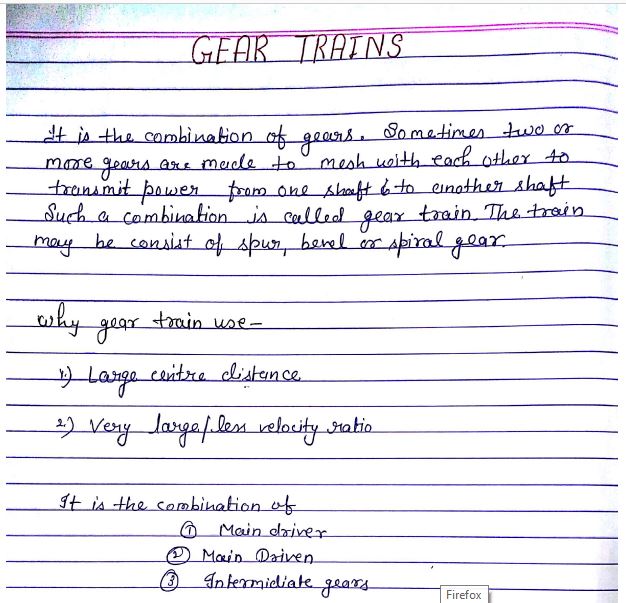 GEAR TRAINS
It is the combination of gears. Sometimes two or
more gears are made to mesh with each other to
transmit power from one shaft to another shaft
Such a combination is called gear train. The train
may be consist of spur, bevel or spiral gear.
Why gear train use-
1.) Large centre distance
2.) Very large/less velocity ratio
It is the combination of
① Main driver
② Main Driven
③ Intermidiate gears
Firefox